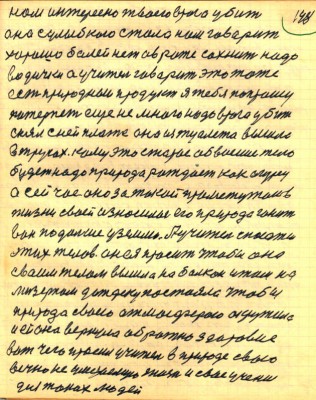 198
нам интересно твоего врага убит
она с улыбкого стала нам говарит
хорошо болей нет а в роте сохнит надо
водички а учител говарит это тоже
ест природнои продукт я тебя попрошу
потерпет еще не много надо врага убит
снял с ней плате она из туалета вышла
в трусах. кому это старае тело
будет надо природа рождает как
а сей час оно за такой промежуток в
жизни своей износилае его природа гонит
вон подалше у землю. А учител
этих телов. он ея просит чтобы она
своим телом вышла на балкон и там на
постояла чтобы
природа своего атмосферою окружила
и ей она вернула обратно здоровие
вот чего просит учител в природе своего
вечно не умираемую и свае учени
для таках людей